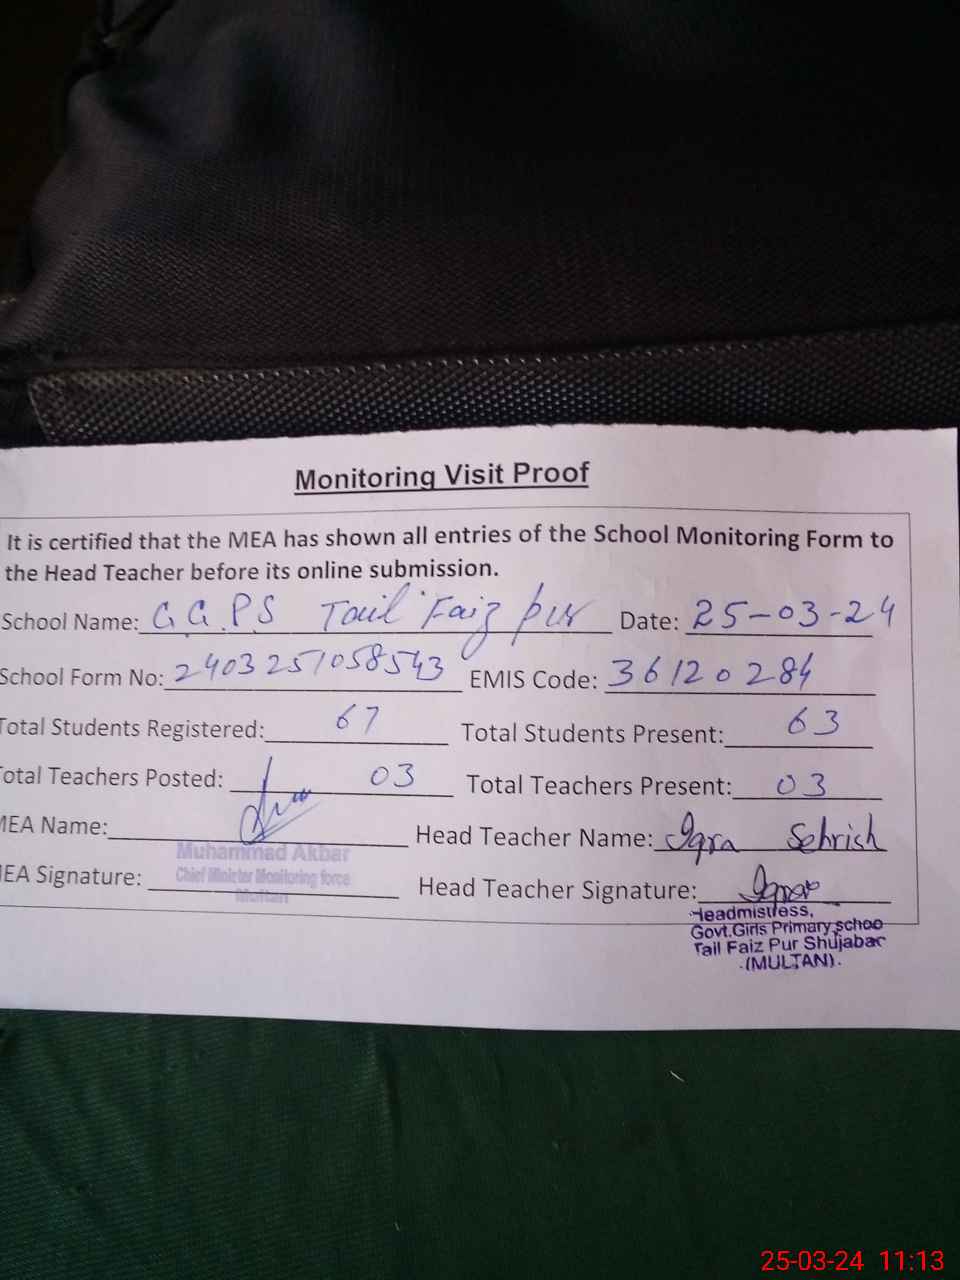 Monitoring Visit Proof
It is certified that the MEA has shown all entries of the School Monitoring Form to
the Head Teacher before its online submission.
School Name: G.G.P.S Tail Faiz pur Date: 25-03-24
School Form No: 2403251058543 EMIS Code: 36120284
Total Students Registered: 67 Total Students Present: 63
Total Teachers Posted: 03 Total Teachers Present: 03
MEA Name: Head Teacher Name: Iqra Sehrish
Muhammad Akbar
Chief Minister Monitoring force
Multan
MEA Signature: Head Teacher Signature: Iqra
Headmistress,
Govt.Girls Primary schoo
Tail Faiz Pur Shujabac
(MULTAN).
25-03-24 11:13